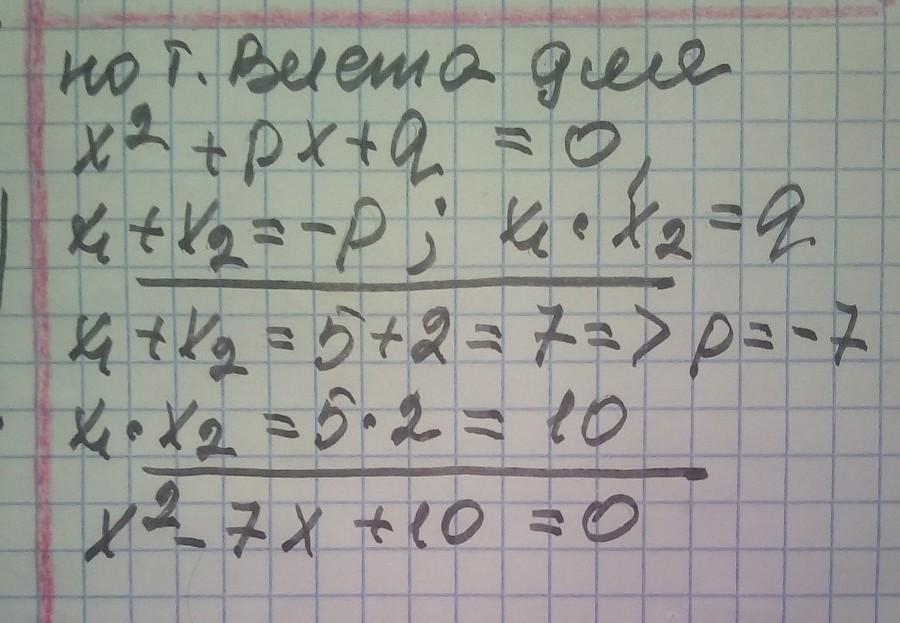 по т. Виета для
x² + px + q = 0,
x₁ + x₂ = -p ; x₁ · x₂ = q
x₁ + x₂ = 5 + 2 = 7 => p = -7
x₁ · x₂ = 5 · 2 = 10
x² - 7x + 10 = 0